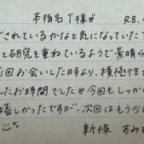 本指名 T様 R8.
ごされているかなと気になっていた
と研究を重ねているようで素晴ら
前回お会いした時より、積極性が
したお時間でした※今回もしっか
嬉しかったですが、次回はもう少
新條 すみれ